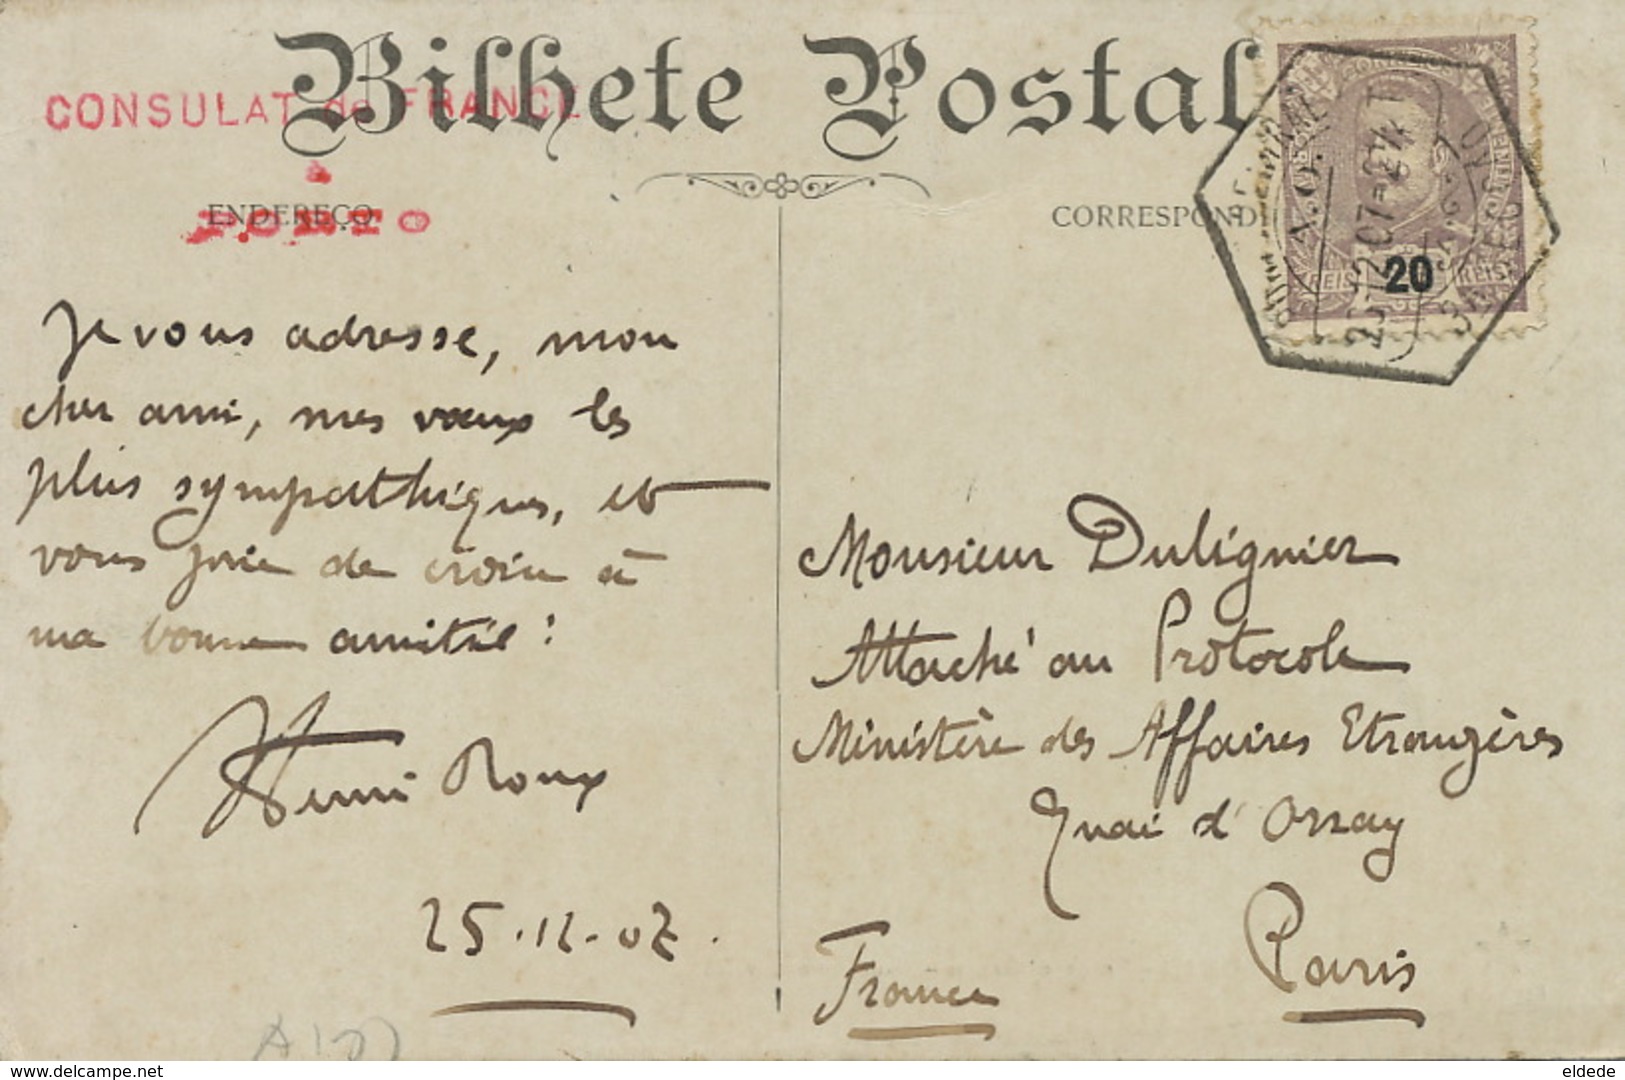 Bilhete Postal
CONSULAT de FRANCE
à
PORTO
ENDEREÇO
CORRESPOND
20
REIS REIS
25-12-07
Je vous adresse, mon
cher ami, mes vœux les
plus sympathiques, et
vous prie de croire à
ma bonne amitié :
Henri Roux
25.12.07.
Monsieur Dulignier
Attaché au Protocole
Ministère des Affaires Etrangères
Quai d'Orsay
Paris
France
www.delcampe.net
eldede